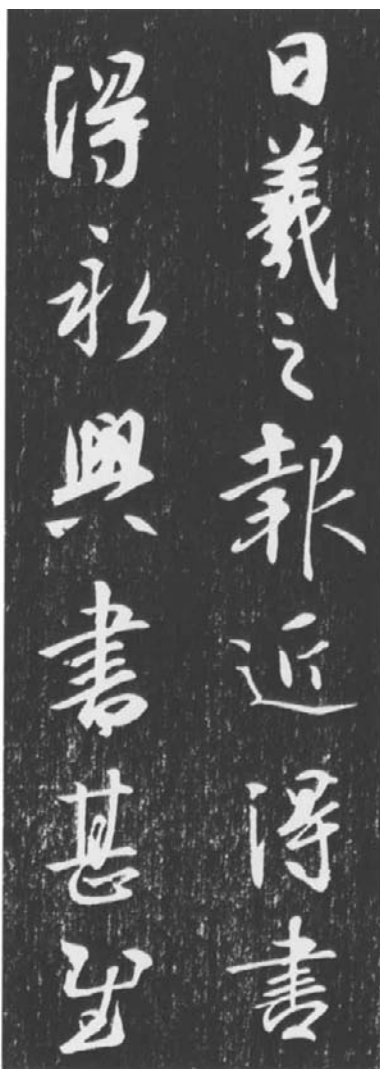 日羲之報近得書
得永興書甚